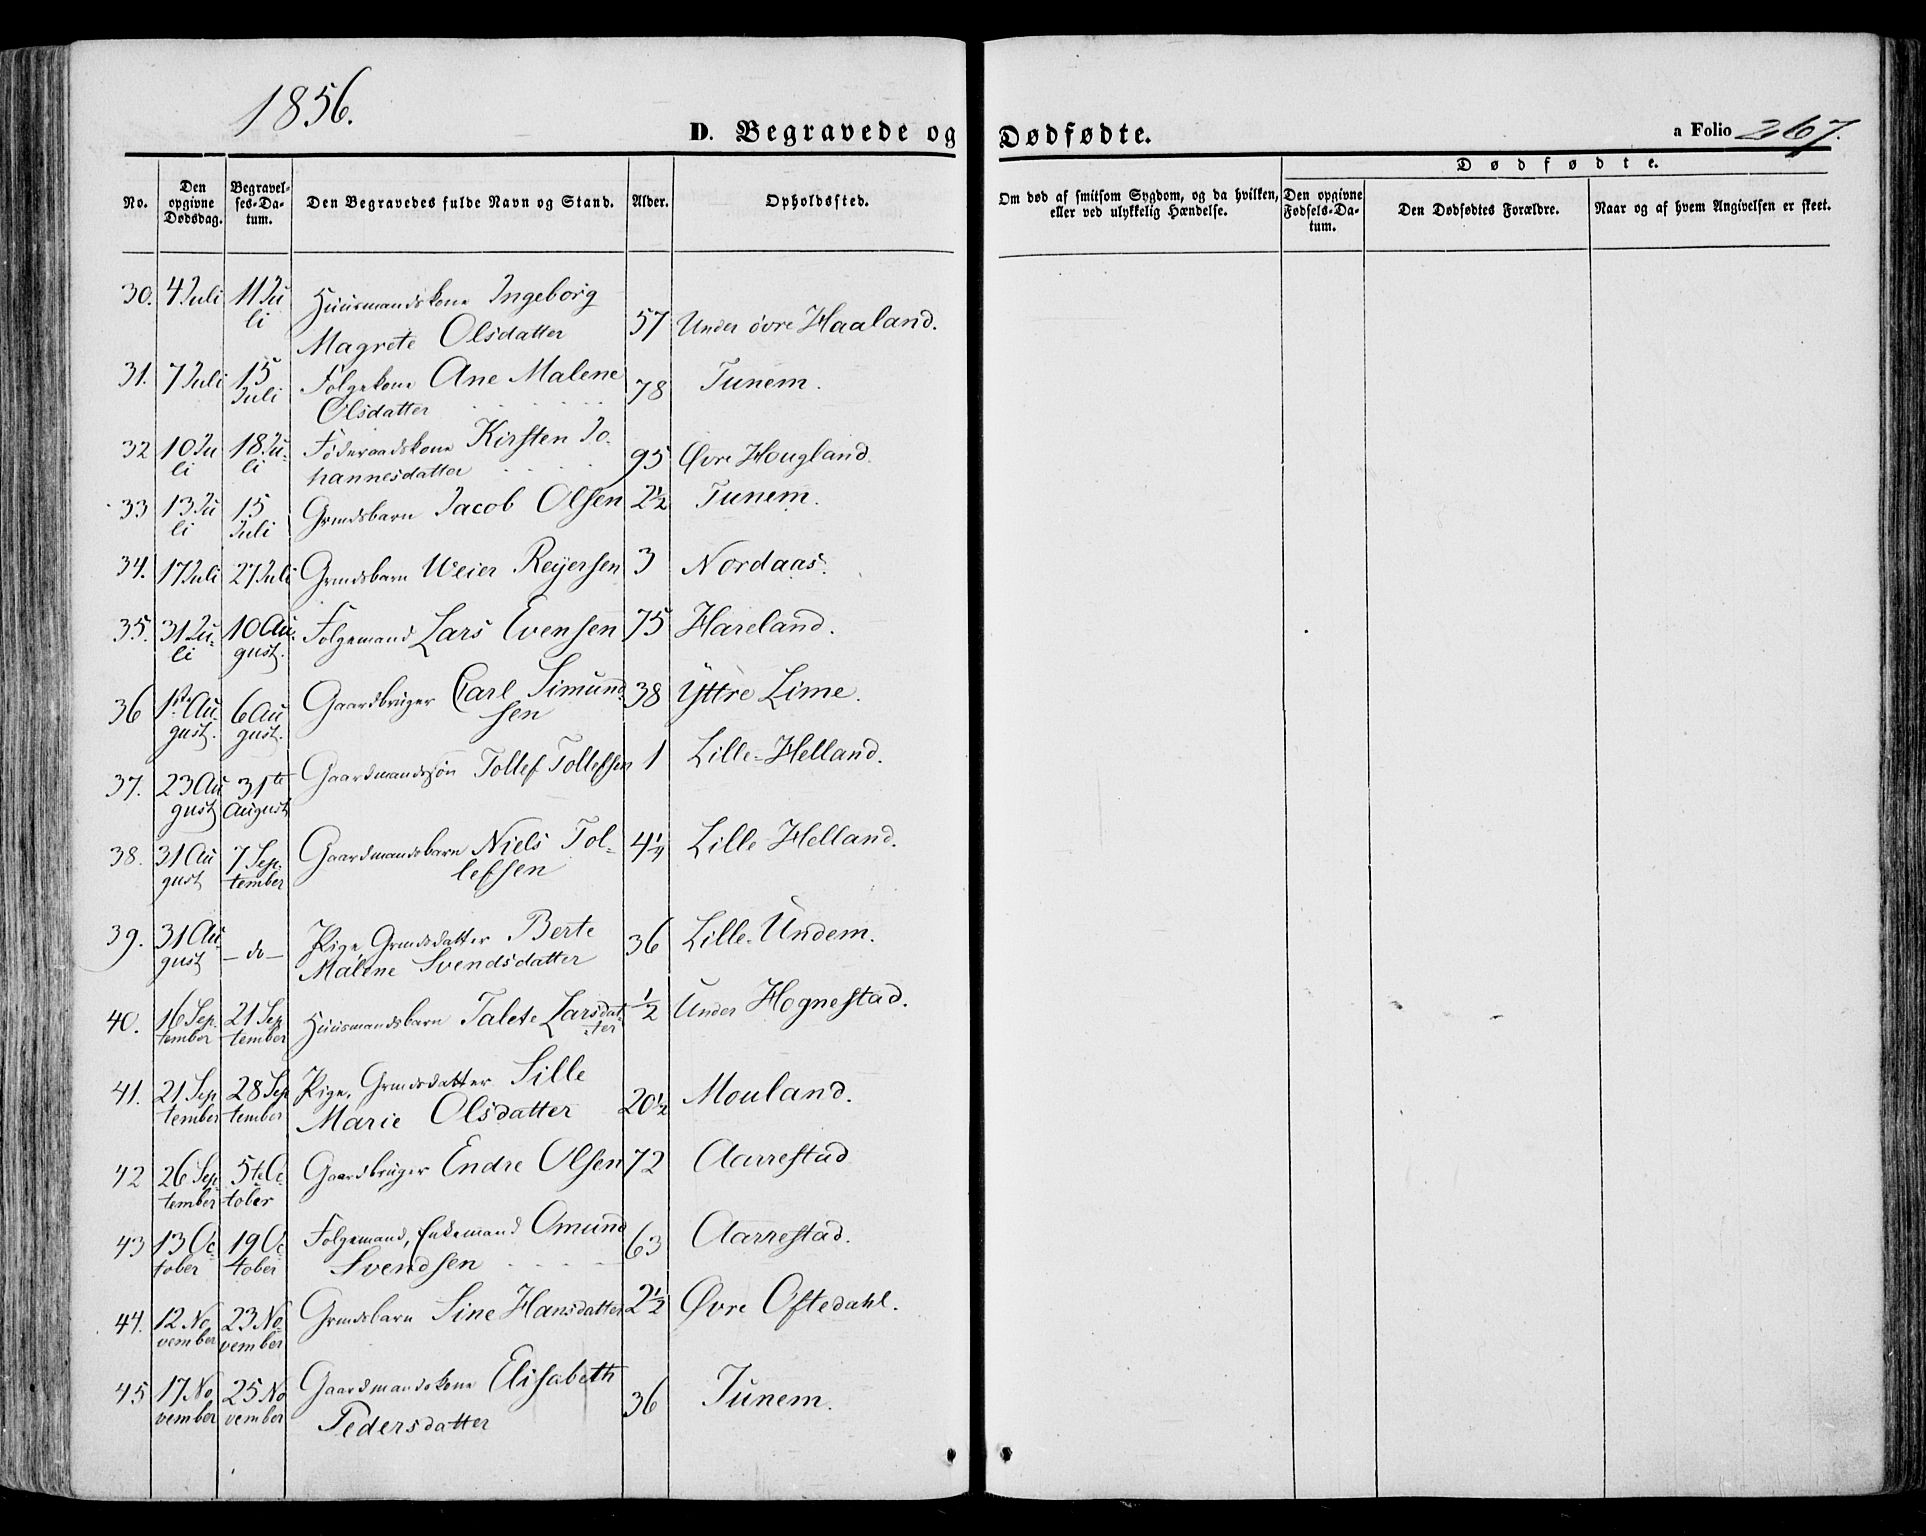 1856.
D. Begravede og Dødfødte.
a Folio 267.
No.
Den opgivne Dødsdag.
Begravelses-Datum.
Den Begravedes fulde Navn og Stand.
Alder.
Opholdssted.
Om død af smitsom Sygdom, og da hvilken, eller ved ulykkelig Hændelse.
Dødfødte.
Den opgivne Fødsels-Datum.
Den Dødfødtes Forældre.
Naar og af hvem Angivelsen er skeet.
30. 4 Juli 11 Juli Huusmandskone Ingeborg Magrete Olsdatter 57 Under övre Haaland.
31. 7 Juli 15 Juli Folgekone Ane Malene Olsdatter 78 Tunem.
32 10 Juli 18 Juli Föderaadskone Kirsten Johannesdatter 95 Øvre Hougland.
33 13 Juli 15 Juli Grmdsbarn Jacob Olsen 2½ Tunem.
34. 17 Juli 27 Juli Grmdsbarn Weier Reyersen 3 Nordaas.
35. 31 Juli 10 August. Folgemand Lars Evensen 75 Hareland.
36 1ste August. 6 August. Gaardbruger Carl Simundsen 38 Yttre Lime.
37. 23 August 31te August Gaardmandssön Tollef Tollefsen 1 Lille-Helland.
38. 31 August 7 September Gaardmandsbarn Niels Tollefsen 4¼ Lille Helland.
39. 31 August – do – Pige, Grmdsdatter Berte Malene Svendsdatter 36 Lille-Undem.
40. 16 September 21 September Huusmandsbarn Talete Larsdatter ½ Under Hognestad.
41. 21 September 28 September Pige, Grmdsdatter Sille Marie Olsdatter 20½ Mouland.
42 26 September 5te October Gaardbruger Endre Olsen 72 Aarrestad
43 13 October 19 October Folgemand, Enkemand Omund Svendsen 63 Aarrestad.
44. 12 November 23 November Grmdsbarn Sine Hansdatter 2½ Øvre Oftedahl.
45 17 November 25 November Gaardmandskone Elisabeth Pedersdatter 36 Tunem.